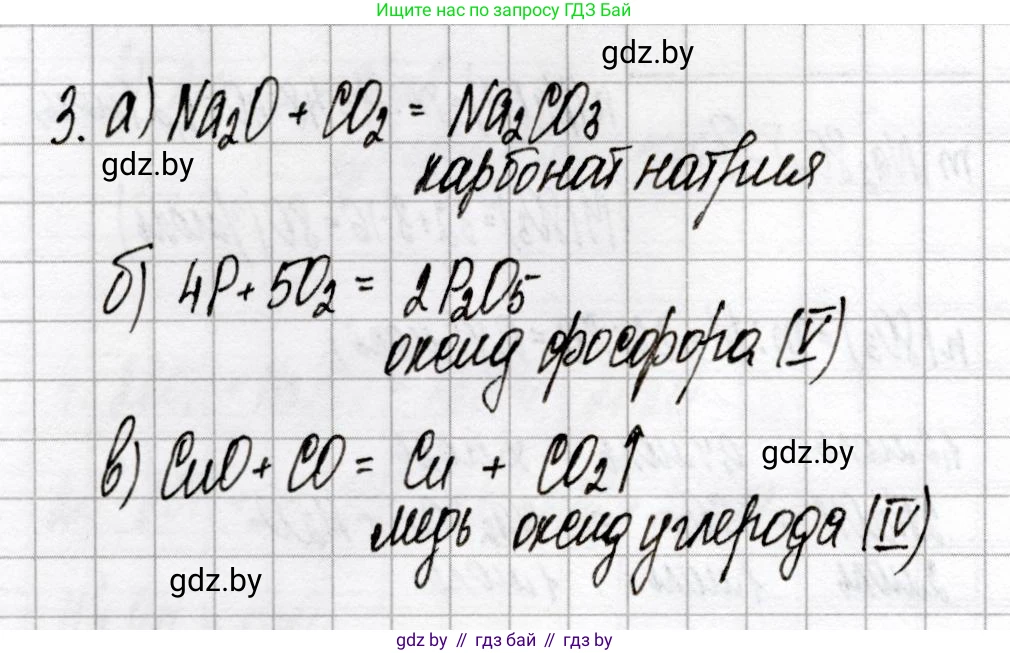 Ищите нас по запросу ГДЗ Бай
gdz.by
3. а) Na₂O + CO₂ = Na₂CO₃
gdz.by
карбонат натрия
б) 4P + 5O₂ = 2P₂O₅
оксид фосфора (V)
в) CuO + CO = Cu + CO₂↑
gdz.by
медь оксид углерода (IV)
gdz.by
gdz.by // гдз бай // гдз by